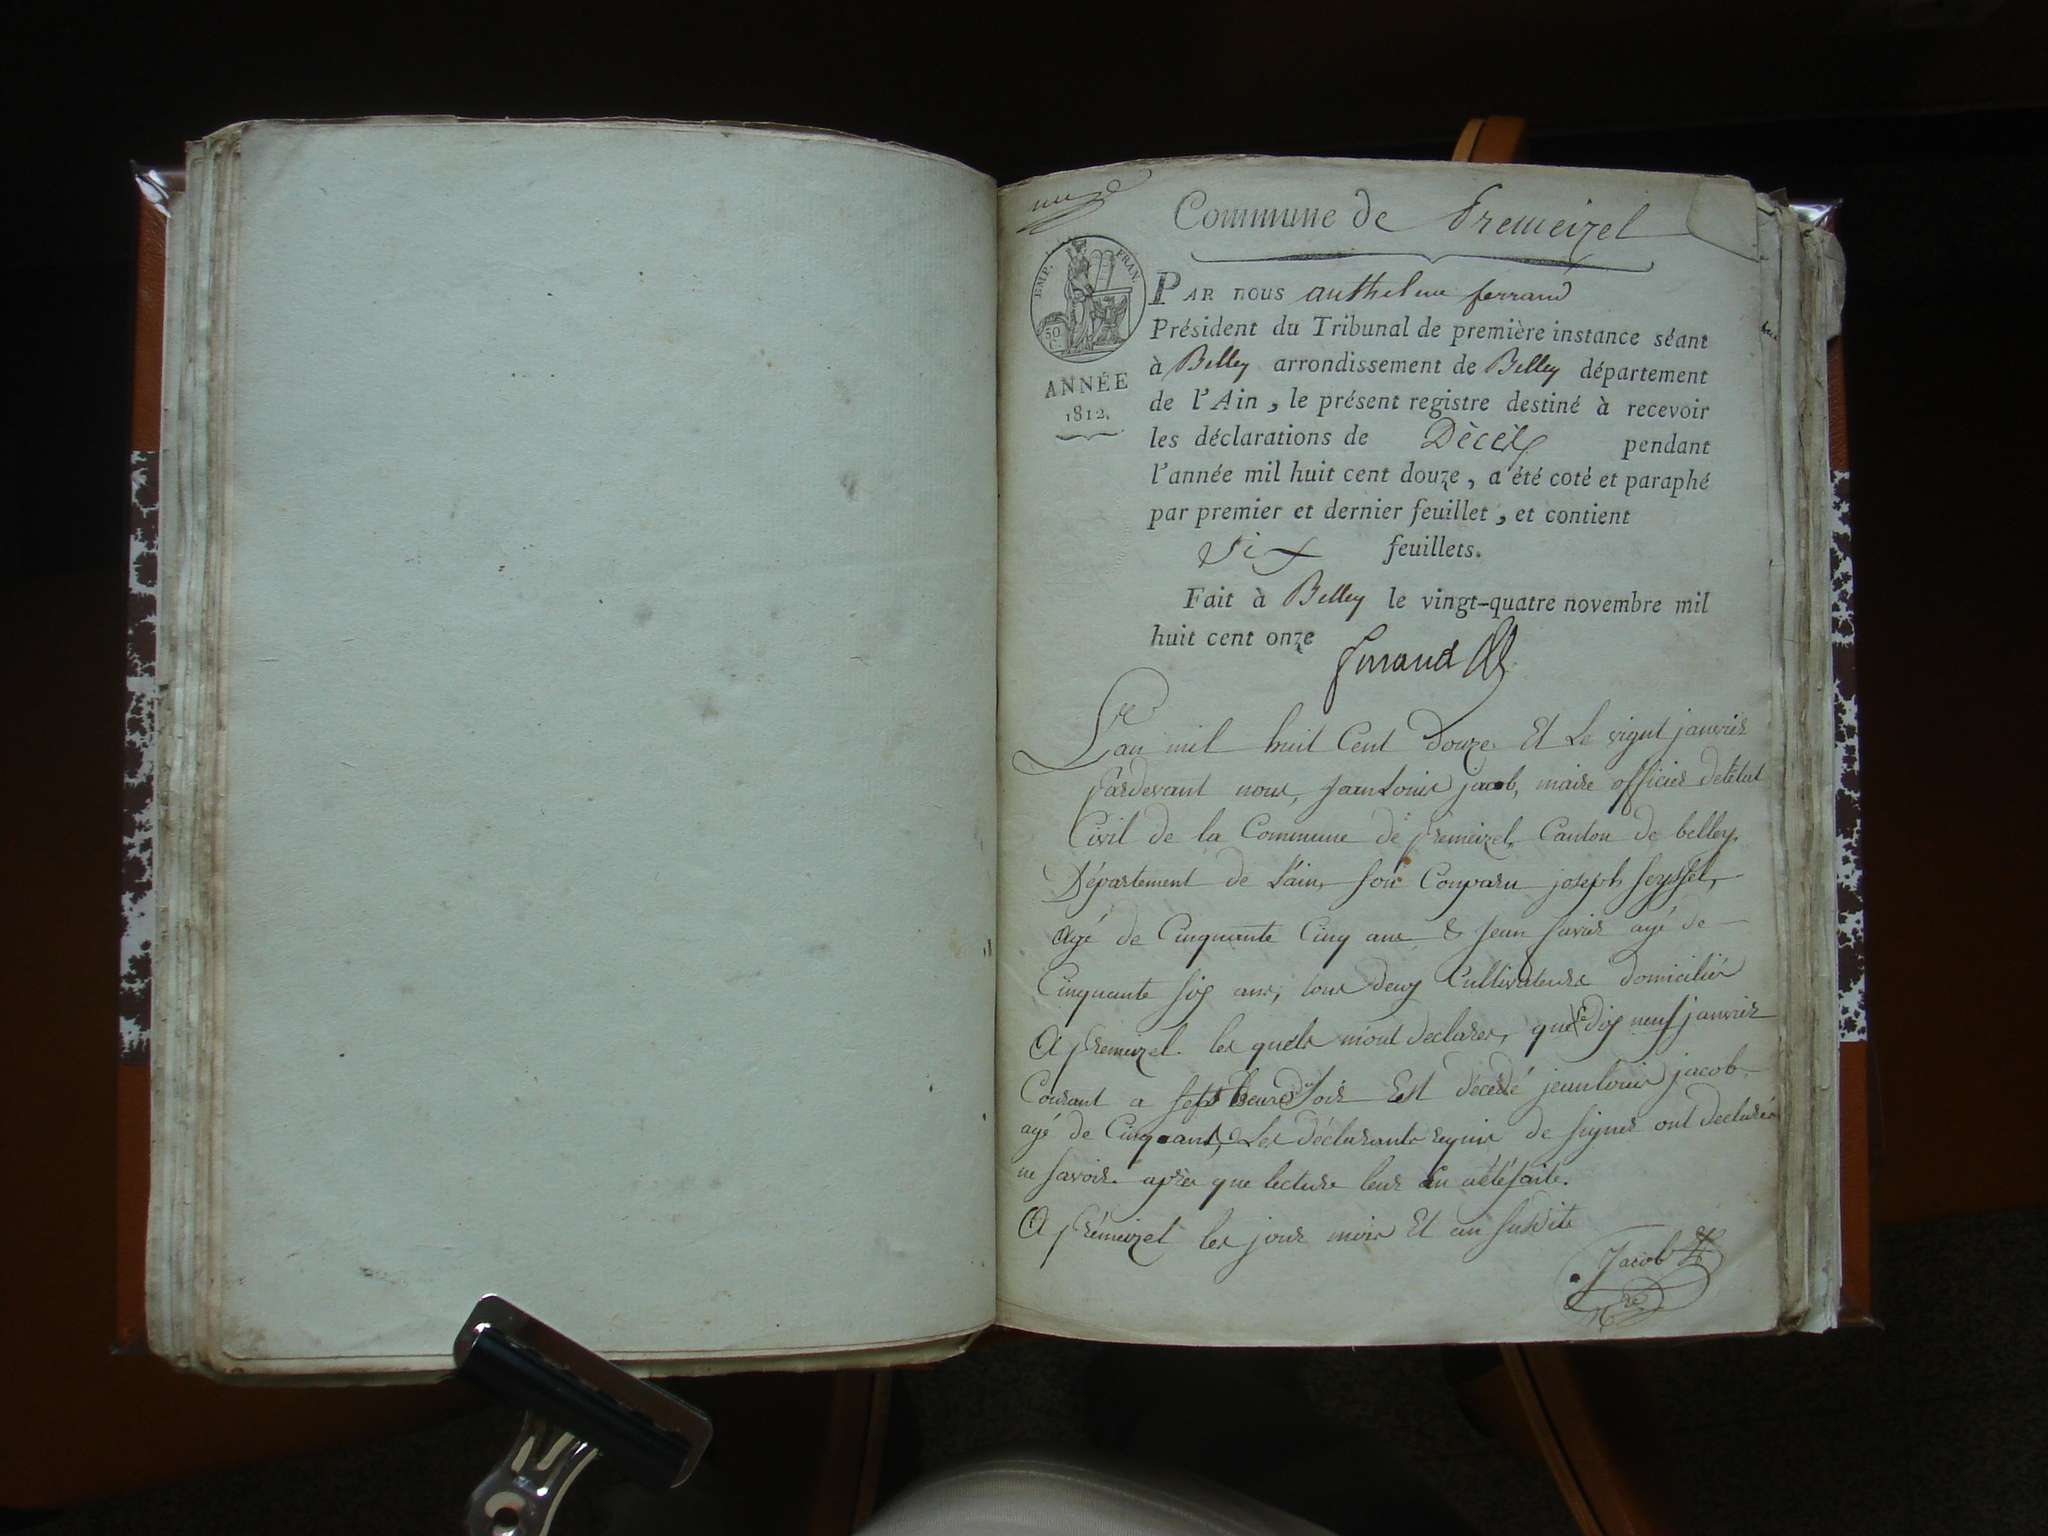 Commune de Premeizel
EMP. FRAN.
50
C.
ANNÉE
1812.
PAR nous anthelme ferrand
Président du Tribunal de première instance séant
à Belley arrondissement de Belley département
de l'Ain, le présent registre destiné à recevoir
les déclarations de Décès pendant
l'année mil huit cent douze, a été coté et paraphé
par premier et dernier feuillet, et contient
six feuillets.
Fait à Belley le vingt-quatre novembre mil
huit cent onze ferrand
L'an mil huit Cent douze Et Le vignt janvier
Pardevant nous, jeanLouis jacob, maire officier detétat
Civil de la Commune de premeizel, Canton de belley,
Département de L'ain, Son Comparu joseph Seyssel,
agé de Cinquante Cinq ans & jean savier agé de
Cinquante six ans, tous deux Cultivateurs domiciliés
A premeizel. les quels m'ont declarer, que le dix neuf janvier
Courant a sept heure du Soir Est décédé jeanlouis jacob
agé de Cinq ans, Les déclarants requis de signer ont declarés
ne savoir. après que lecture leur En aétéfaite.
A prémeizel les jour mois Et an susdits
Jacob